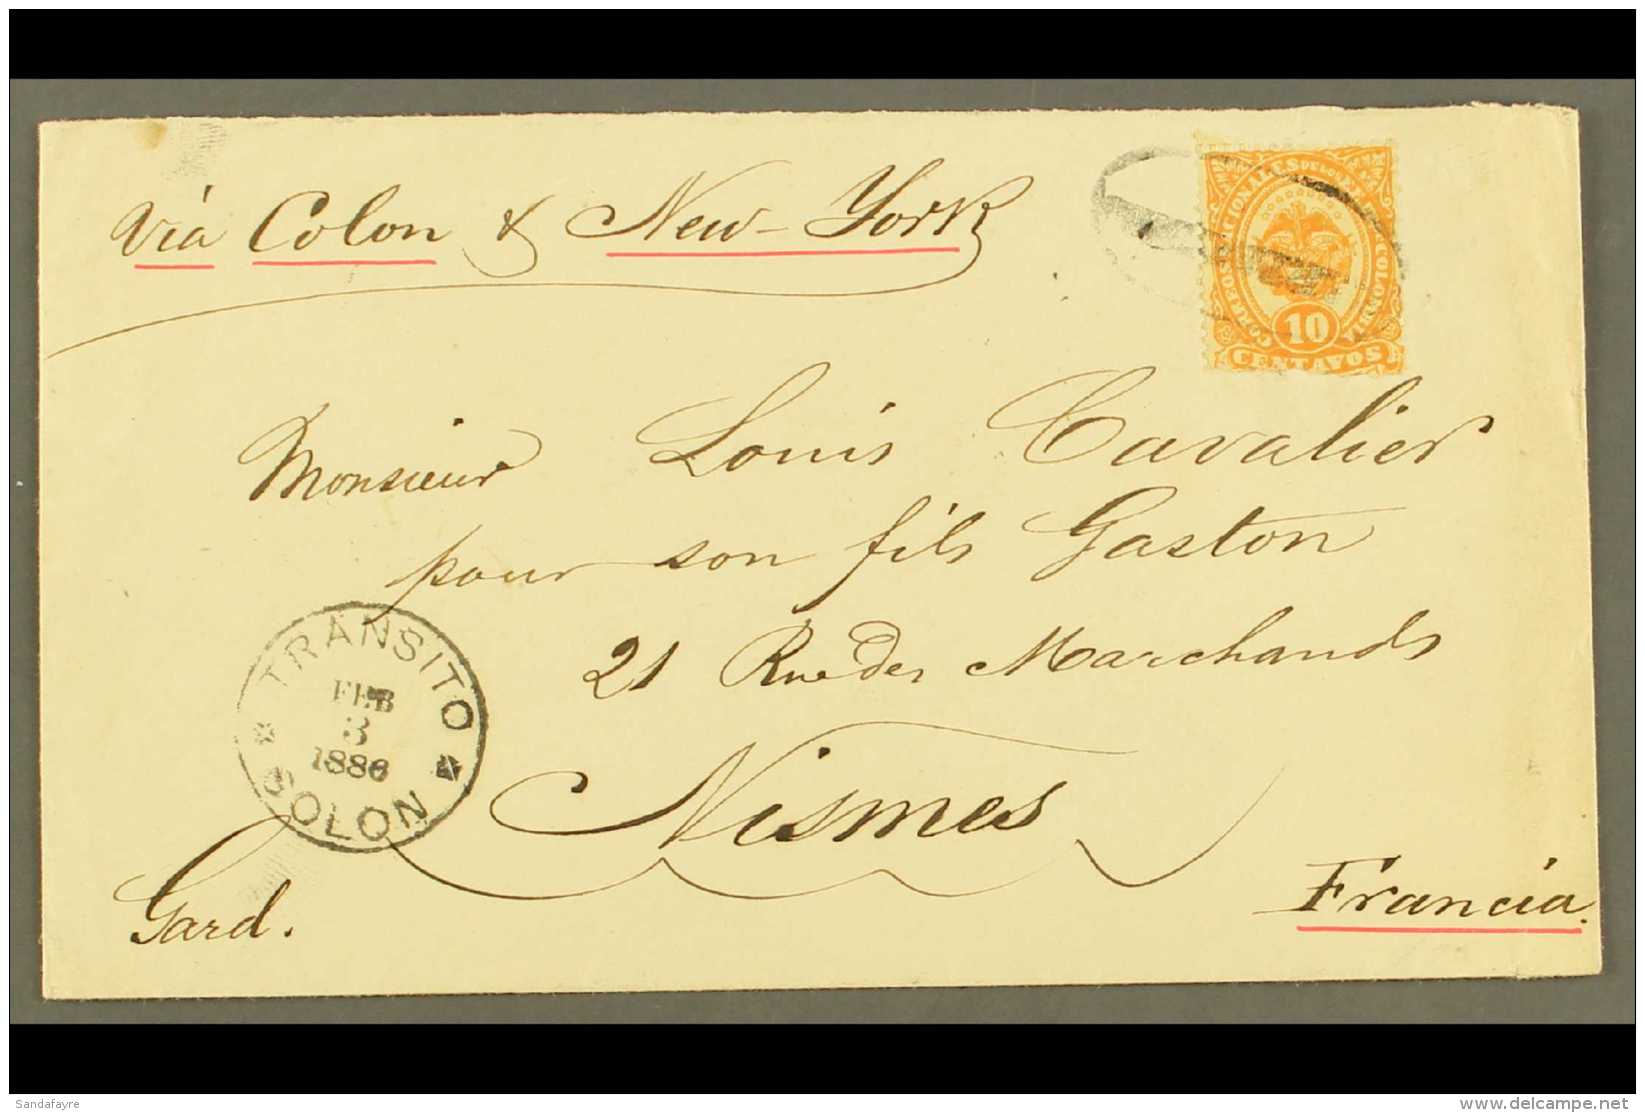 via Colon & New-York
CORREOS NACIONALES DE LOS EE.UU. DE COLOMBIA
10
CENTAVOS
Monsieur Louis Cavalier
pour son fils Gaston
21 Rue des Marchands
Nismes
TRANSITO
FEB
3
1886
COLON
Gard.
Francia.
Sandafayre
delcampe.net